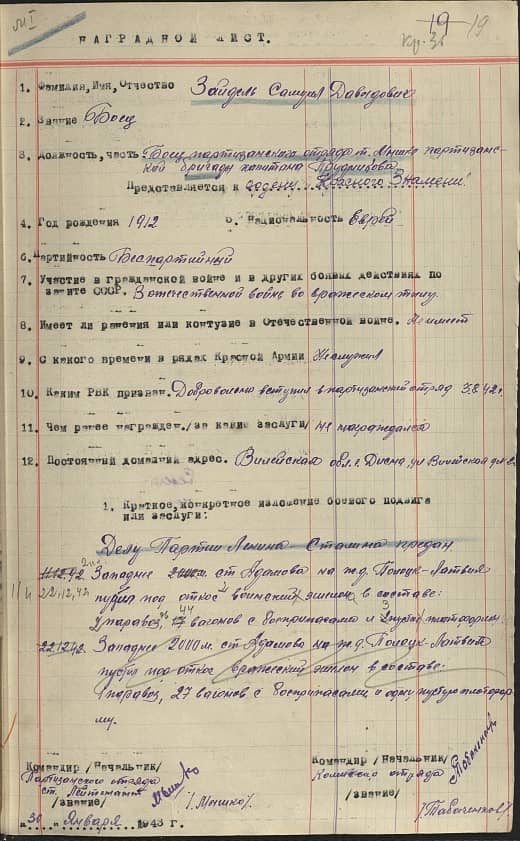 19 19
НАГРАДНОЙ ЛИСТ.
1. Фамилия, Имя, Отчество Зайдель Самуил Давыдович
2. Звание Боец
3. Должность, часть. Боец партизанского отряда т. Мышко партизанс-
кой бригады капитана Прудникова
Представляется к ордену "Красного Знамени"
4. Год рождения 1912 5. Национальность Еврей
6. Партийность Беспартийный
7. Участие в гражданской войне и в других боевых действиях по
защите СССР. В отечественной войне во вражеском тылу.
8. Имеет ли ранения или контузие в Отечественной войне. Не имеет
9. С какого времени в рядах Красной Армии Не служил
10. Каким РВК призван. Добровольно вступил в партизанский отряд 3.8.42г.
11. Чем ранее награжден /за какие заслуги/ не награждался
12. Постоянный домашний адрес. Вилейская обл. г. Дисна, ул
1. Краткое, конкретное изложение боевого подвига
или заслуги:
Делу Партии Ленина-Сталина предан.
Западнее м. ст Адамова на ж.д. Полоцк-Латвия
22.12.42 пустил под откос эшелон в составе:
паровоз, 44 вагонов с боеприпасами и 3 платформы
22.12.42. Западнее 2000 м. ст Адамово на ж.д. Полоцк-Латвия
пустил под откос вражеский эшелон в составе:
1 паровоз, 27 вагонов с боеприпасами и одну пустую платфор-
му.
Командир /Начальник/ Командир /Начальник/
Партизанского отряда Комиссар отряда
ст. Лейтенант
/звание/ /Мышко/. /звание/ /Табаченков/
"30" Января 1943 г.